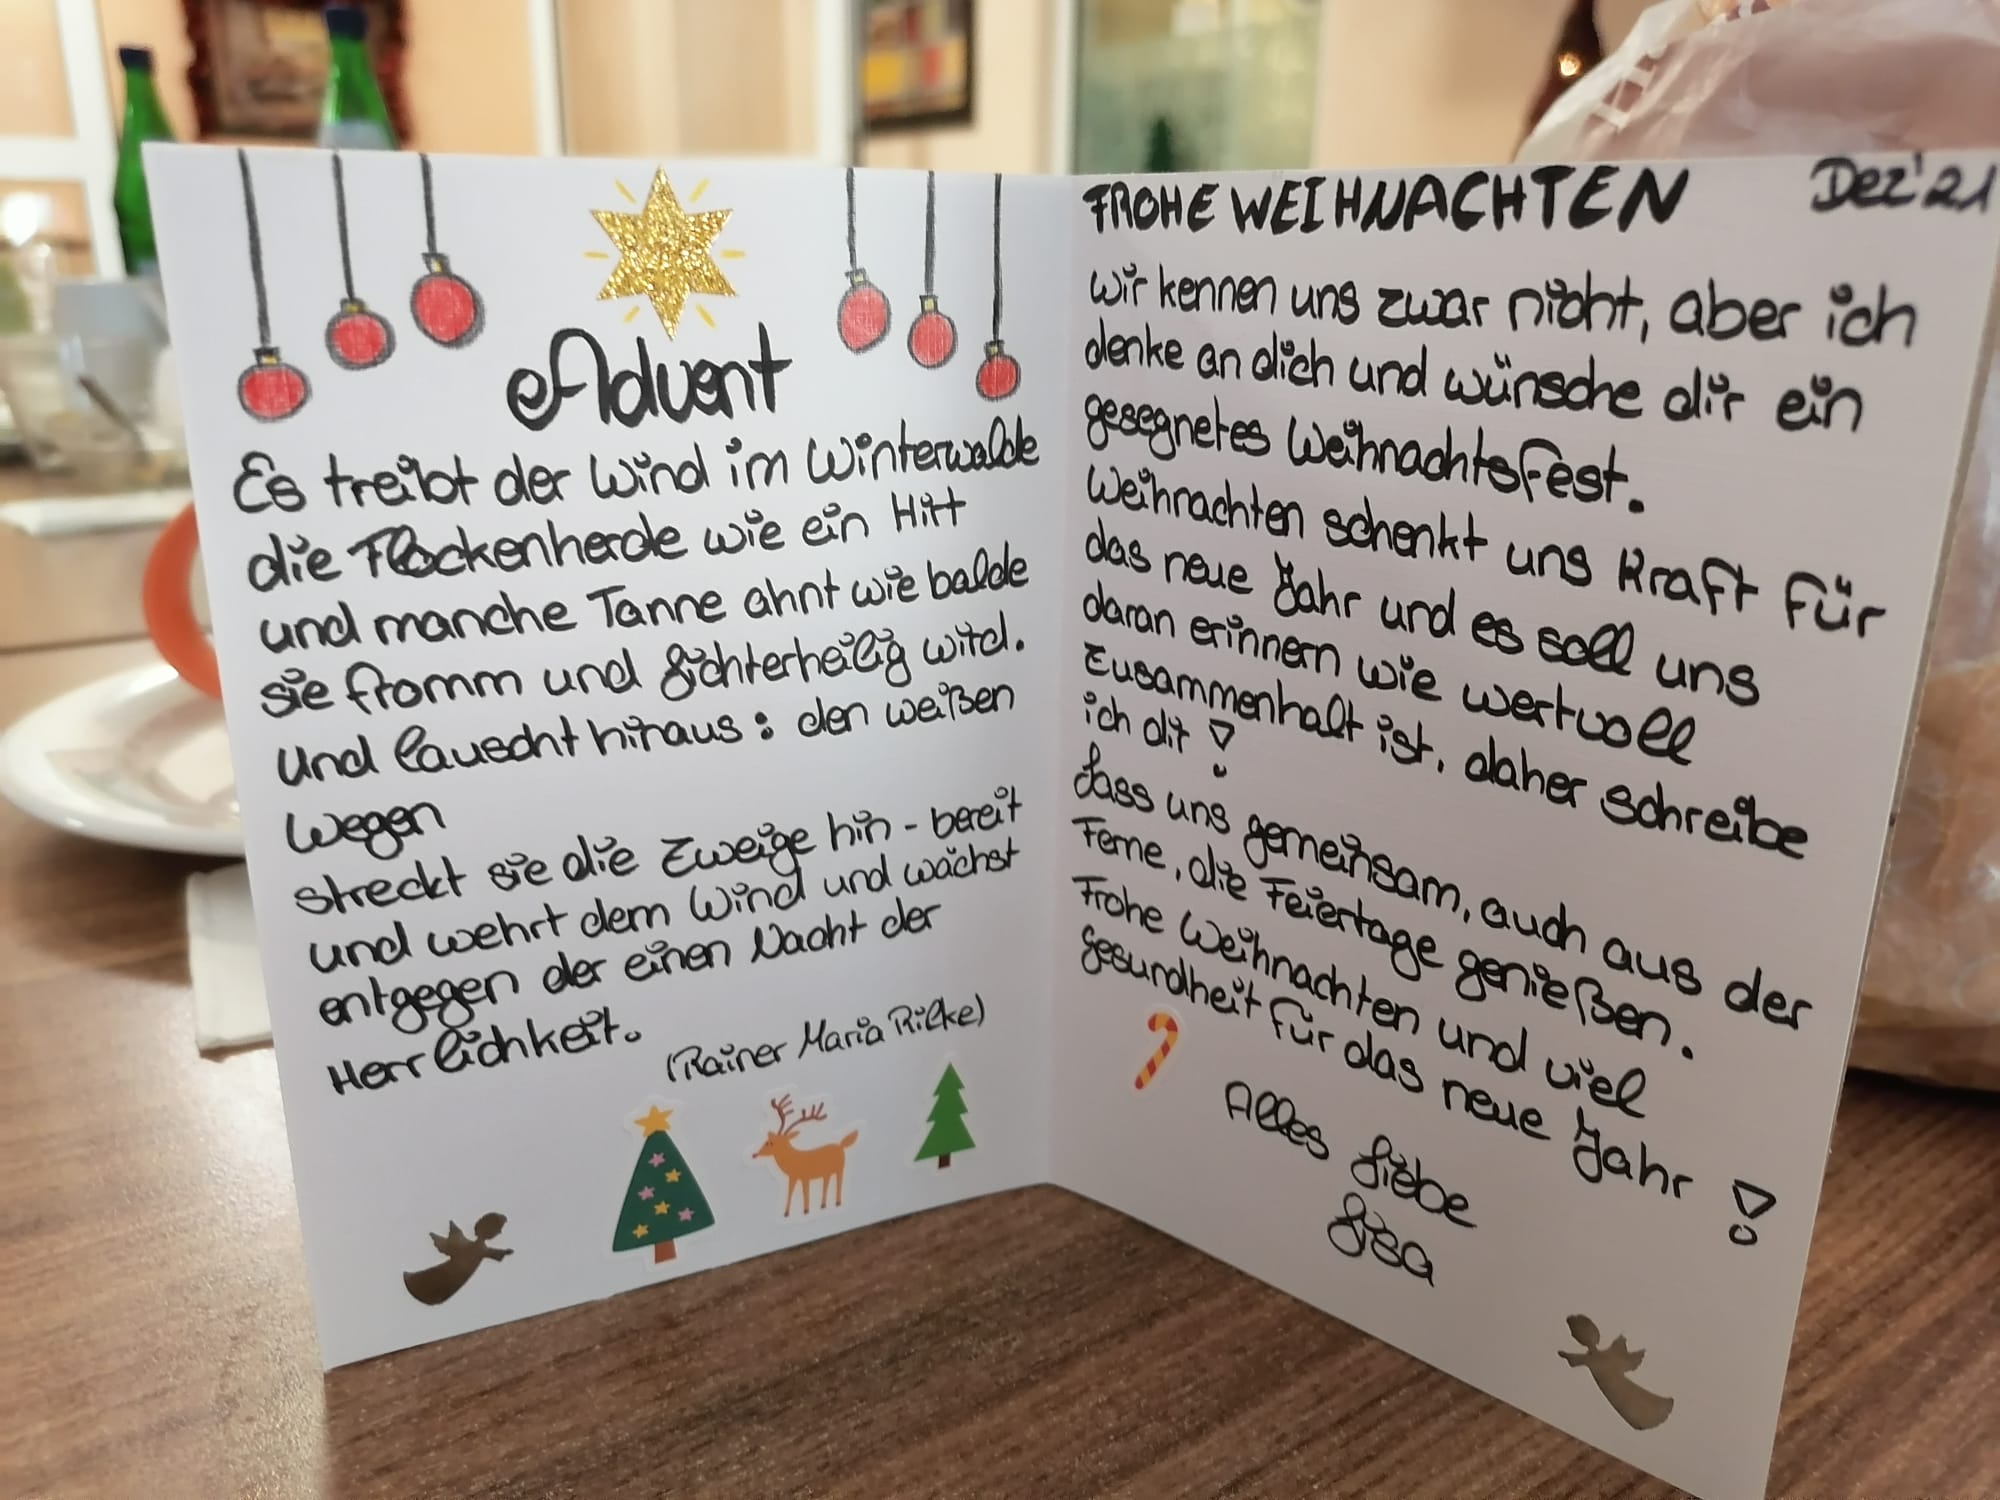 Advent
Es treibt der Wind im Winterwalde
die Flockenherde wie ein Hirt
und manche Tanne ahnt wie balde
sie fromm und lichterheilig wird.
Und lauscht hinaus: den weißen
Wegen
streckt sie die Zweige hin - bereit
und wehrt dem Wind und wächst
entgegen der einen Nacht der
Herrlichkeit.
(Rainer Maria Rilke)
FROHE WEIHNACHTEN
Dez'21
Wir kennen uns zwar nicht, aber ich
denke an dich und wünsche dir ein
gesegnetes Weihnachtsfest.
Weihnachten schenkt uns Kraft für
das neue Jahr und es soll uns
daran erinnern wie wertvoll
Zusammenhalt ist, daher schreibe
ich dir!
Lass uns gemeinsam, auch aus der
Ferne, die Feiertage genießen.
Frohe Weihnachten und viel
Gesundheit für das neue Jahr!
Alles Liebe
Lisa